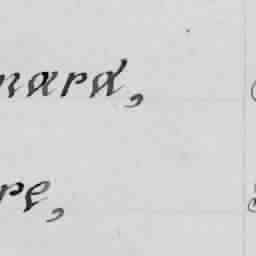 nard,
re,